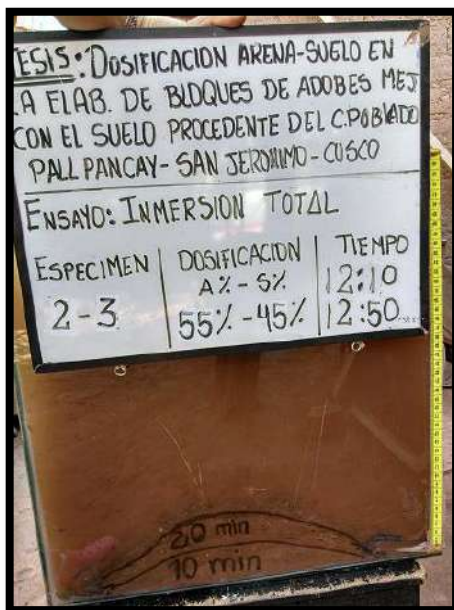 TESIS: DOSIFICACION ARENA-SUELO EN
LA ELAB. DE BLOQUES DE ADOBES MEJ
CON EL SUELO PROCEDENTE DEL C.POBLADO
PALLPANCAY- SAN JERONIMO - CUSCO
ENSAYO: INMERSION TOTAL
ESPECIMEN DOSIFICACION TIEMPO
A% - S% 12:10
2-3 55% - 45% 12:50
20 min
10 min